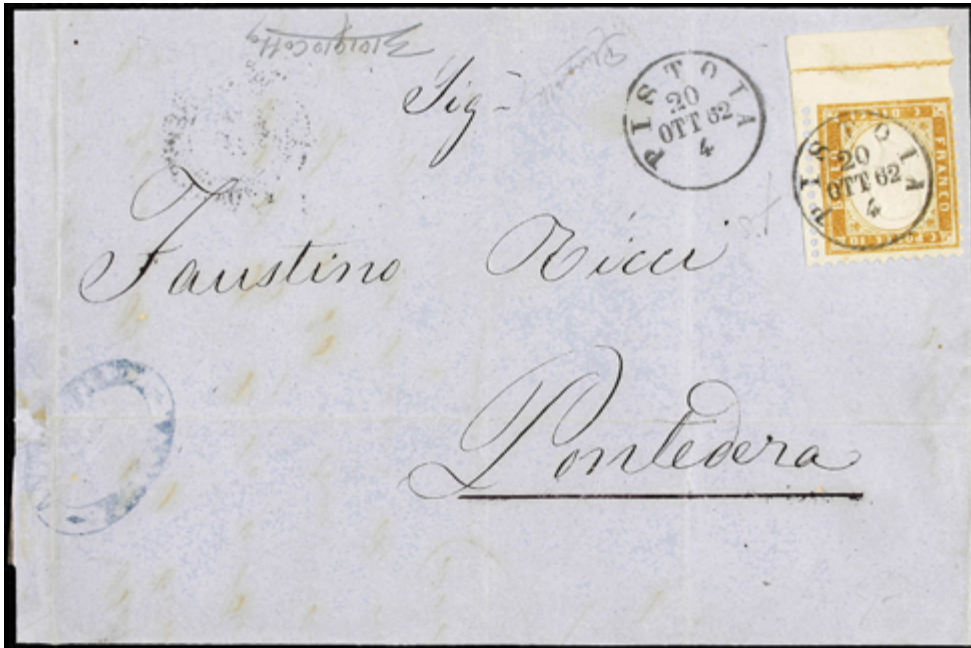 Sig-
PISTOIA
20
OTT 62
4
PISTOIA
20
OTT 62
4
FRANCO
BOLLO
C. POSTE 10
Faustino Ricci
Pontedera